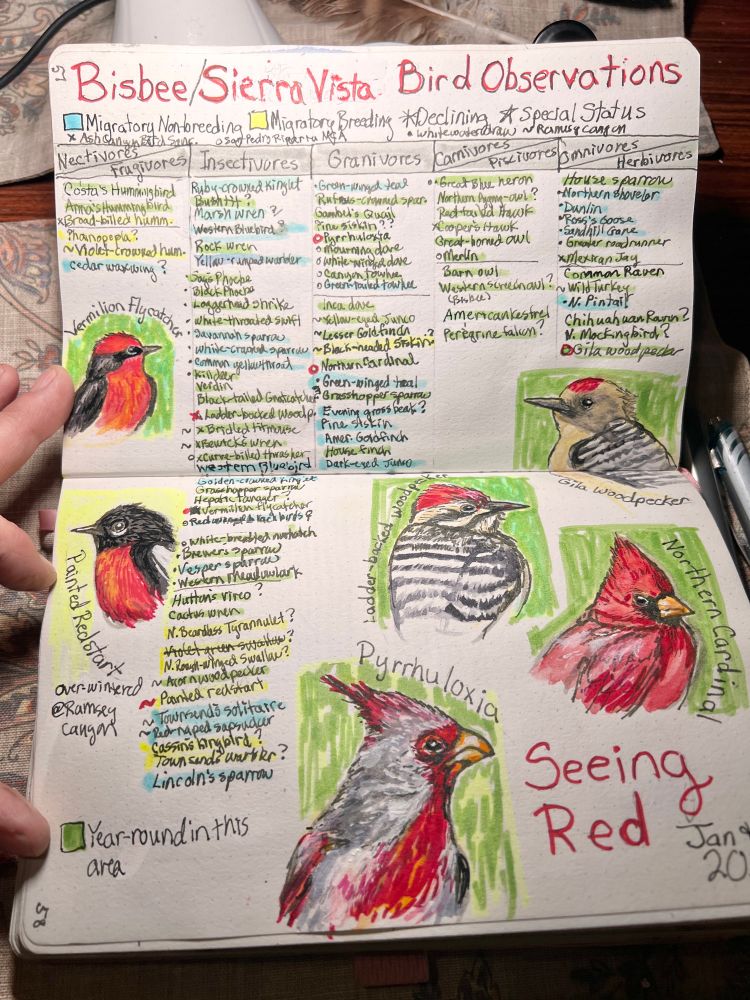 57
Bisbee/Sierra Vista Bird Observations
Migratory Nonbreeding Migratory Breeding Declining Special Status
x Ash Canyon Bird Sanc. o San Pedro Riparian NCA • Whitewater draw ~ Ramsey canyon
Nectivores Frugivores
Costa's Hummingbird
Anna's Hummingbird
x Broad-billed humm.
Phainopepla?
~ Violet-crowned hum.
Cedar waxwing?
Vermilion Flycatcher
Insectivores
Ruby-crowned kinglet
Bushtit?
Marsh wren?
Western Bluebird?
Rock wren
Yellow-rumped warbler
Says Phoebe
Black Phoebe
Loggerhead shrike
White-throated swift
Savannah sparrow
White-crowned sparrow
Common yellowthroat
Killdeer
Verdin
Black-tailed Gnatcatcher
Ladder-backed woodp.
~ x Bridled titmouse
~ x Bewick's wren
x Curve-billed thrasher
Western Bluebird
Granivores
• Green-winged teal
Rufous-crowned spar.
Gambel's Quail
Pine siskin??
Pyrrhuloxia
o mourning dove
o white-winged dove
o Canyon towhee
o Green-tailed towhee
Inca dove
~ Yellow-eyed Junco
~ Lesser Goldfinch ?
~ Black-headed Siskin
Northern Cardinal
• Green-winged teal
Grasshopper sparrow
Evening grosbeak?
Pine siskin
Amer. Goldfinch
House finch
Dark-eyed Junco
Carnivores Piscivores
• Great Blue heron
Northern Pygmy-owl?
Red tailed Hawk
x Cooper's Hawk
Great-horned owl
o merlin
Barn owl
Western screech owl?
(Bisbee)
American kestrel
Peregrine falcon?
Omnivores Herbivores
House sparrow
• Northern shoveler
• Dunlin
• Ross's Goose
• Sandhill Crane
• Greater roadrunner
x Mexican Jay
Common Raven
~ Wild Turkey
• N. Pintail
Chihuahuan Raven?
N. Mockingbird?
Gila woodpecker
Gila woodpecker
Golden-crowned kinglet
Grasshopper sparrow
Hepatic tanager?
Vermilion flycatcher
o Red winged blackbirds
o White-breasted nuthatch
• Brewers sparrow
• Vesper sparrow
• Western meadowlark
Hutton's vireo
Cactus wren
N. Beardless Tyrannulet?
Violet green swallow?
N. Rough-winged Swallow?
~ Acorn woodpecker
~ Painted redstart
~ Townsend's solitaire
~ Red-naped sapsucker
Cassins kingbird?
Townsends warbler?
Lincoln's sparrow
Painted Redstart
over-wintered
@Ramsey
Canyon
Ladder-backed woodpecker
Northern Cardinal
Pyrrhuloxia
Seeing
Red
Jan
20
Year-round in this
area
58